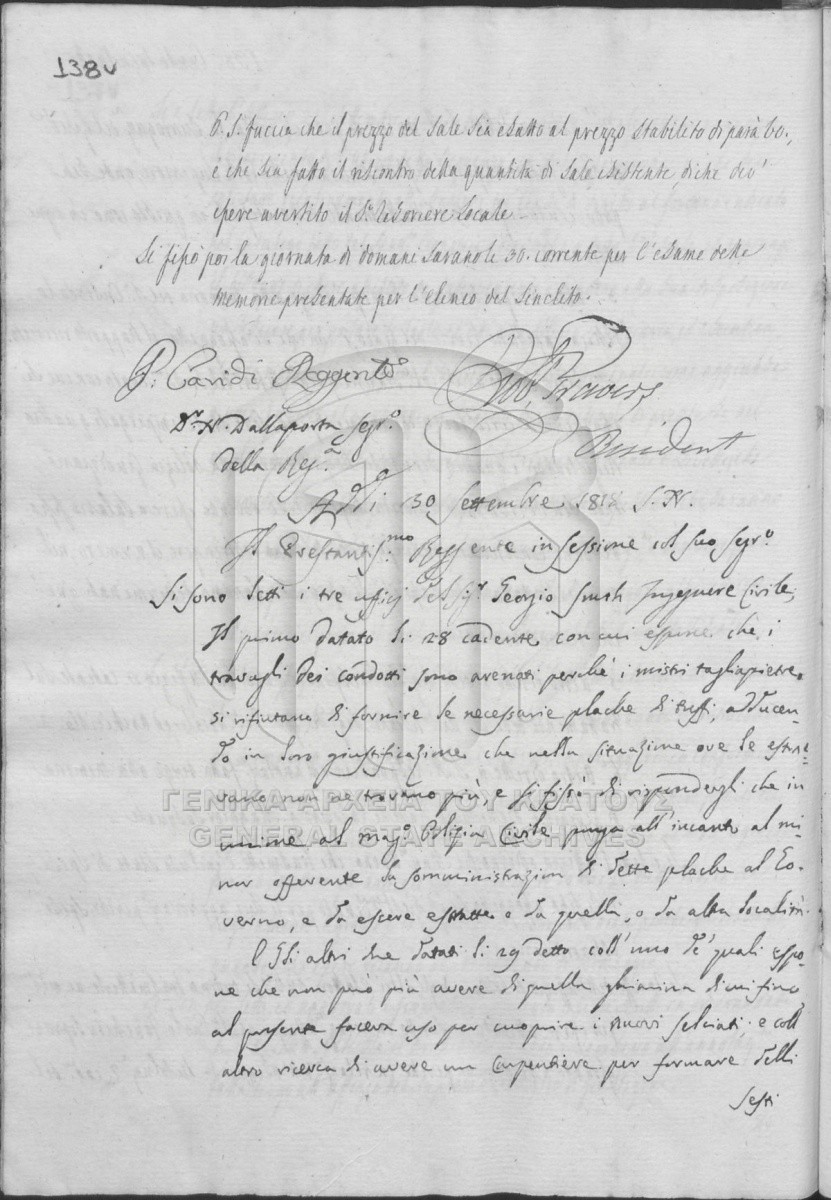 138v
P. S. faccia che il prezzo del Sale sia esatto al prezzo stabilito di parà 60.,
e che sia fatto il riscontro della quantità di Sale esistente, di che dev'
essere avertito il Sr. Tesoriere locale
Si fissò poi la giornata di domani saranno li 30. corrente per l'esame delle
memorie presentate per l'elenco del Sincleto.
P: Caridi Reggente
President
Dr. N. Dallaporta Segr.o
della Regg.a
Addi 30 Settembre 1818 S. N.
Il Prestantiss.mo Reggente in sessione col suo segr.o
Si sono letti i tre ufficj del Sigr. Georgio Smith Ingegnere Civile;
Il primo datato li 28 cadente con cui espone che i
travagli dei condotti sono arenati perchè i mistri tagliapietre
si rifiutano di fornire le necessarie plache di tuffi, adducen-
do in loro giustificazione che nella situazione ove le estrae-
vano non ne trovano più, e si fissò di rispondergli che in-
unione al mag.o Polizia Civile ponga all'incanto al mi-
nor offerente la somministrazion di dette plache al Go-
verno, e da essere estratte o da quella, o da altra località.
E gli altri due datati li 29 detto coll'uno de' quali espo-
ne che non può più avere di quella ghiarina di cui fino
al presente faceva uso per cuoprire i nuovi selciati e coll'
altro ricerca di avere un Carpentiere per formare delli
sesti
ΓΕΝΙΚΑ ΑΡΧΕΙΑ ΤΟΥ ΚΡΑΤΟΥΣ
GENERAL STATE ARCHIVES